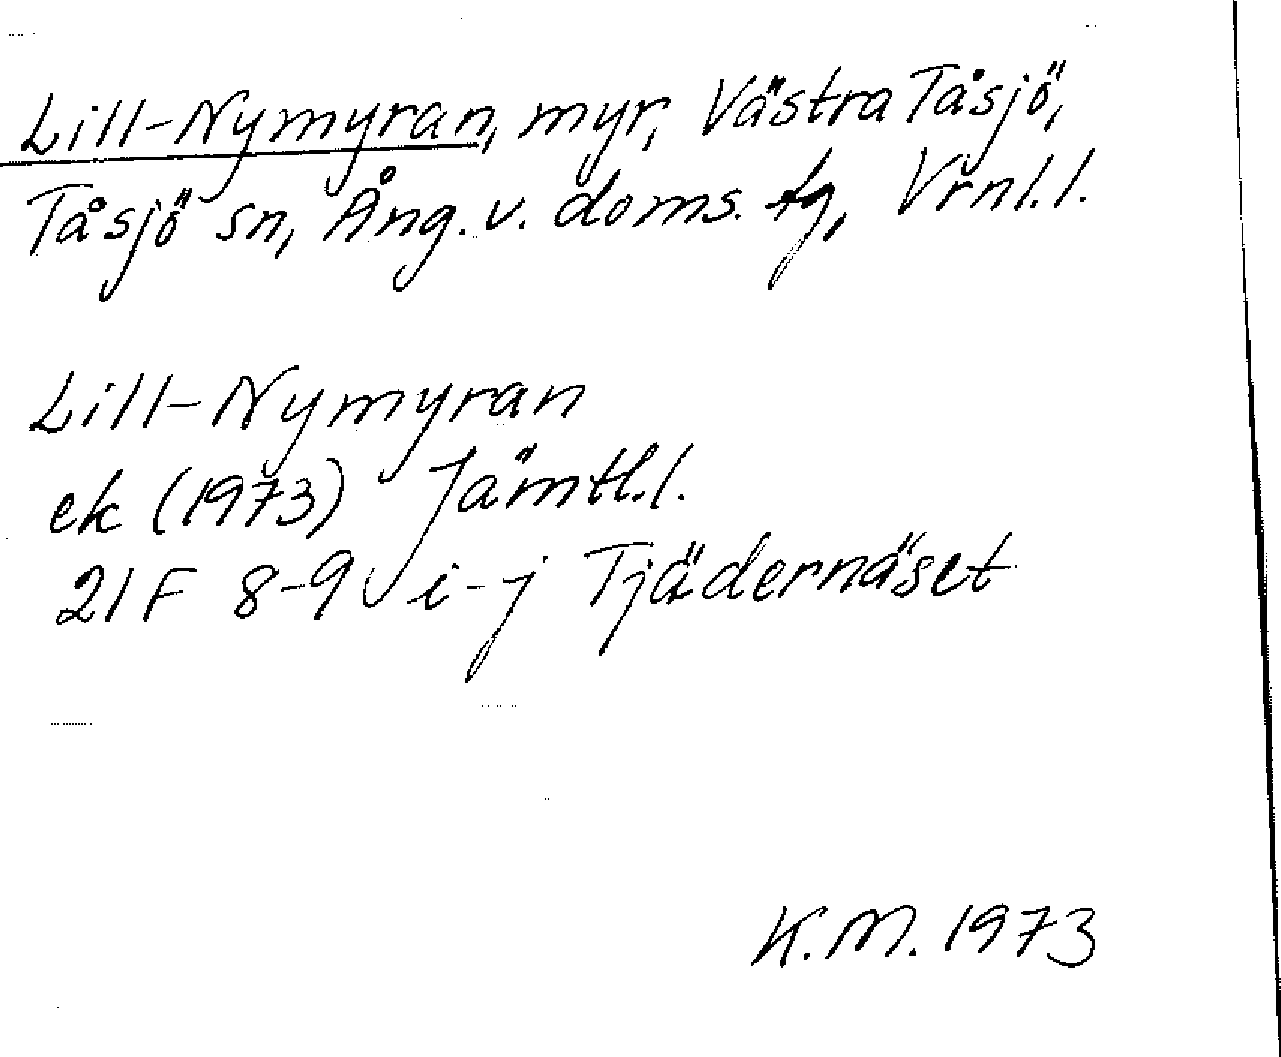 Lill-Nymyran, myr, Västra Tåsjö,
Tåsjö sn, Ång. v. doms. tg, Vrnl.l.
Lill-Nymyran
ek (1973) Jämtl.l.
21F 8-9 i-j Tjädernäset
K.M. 1973